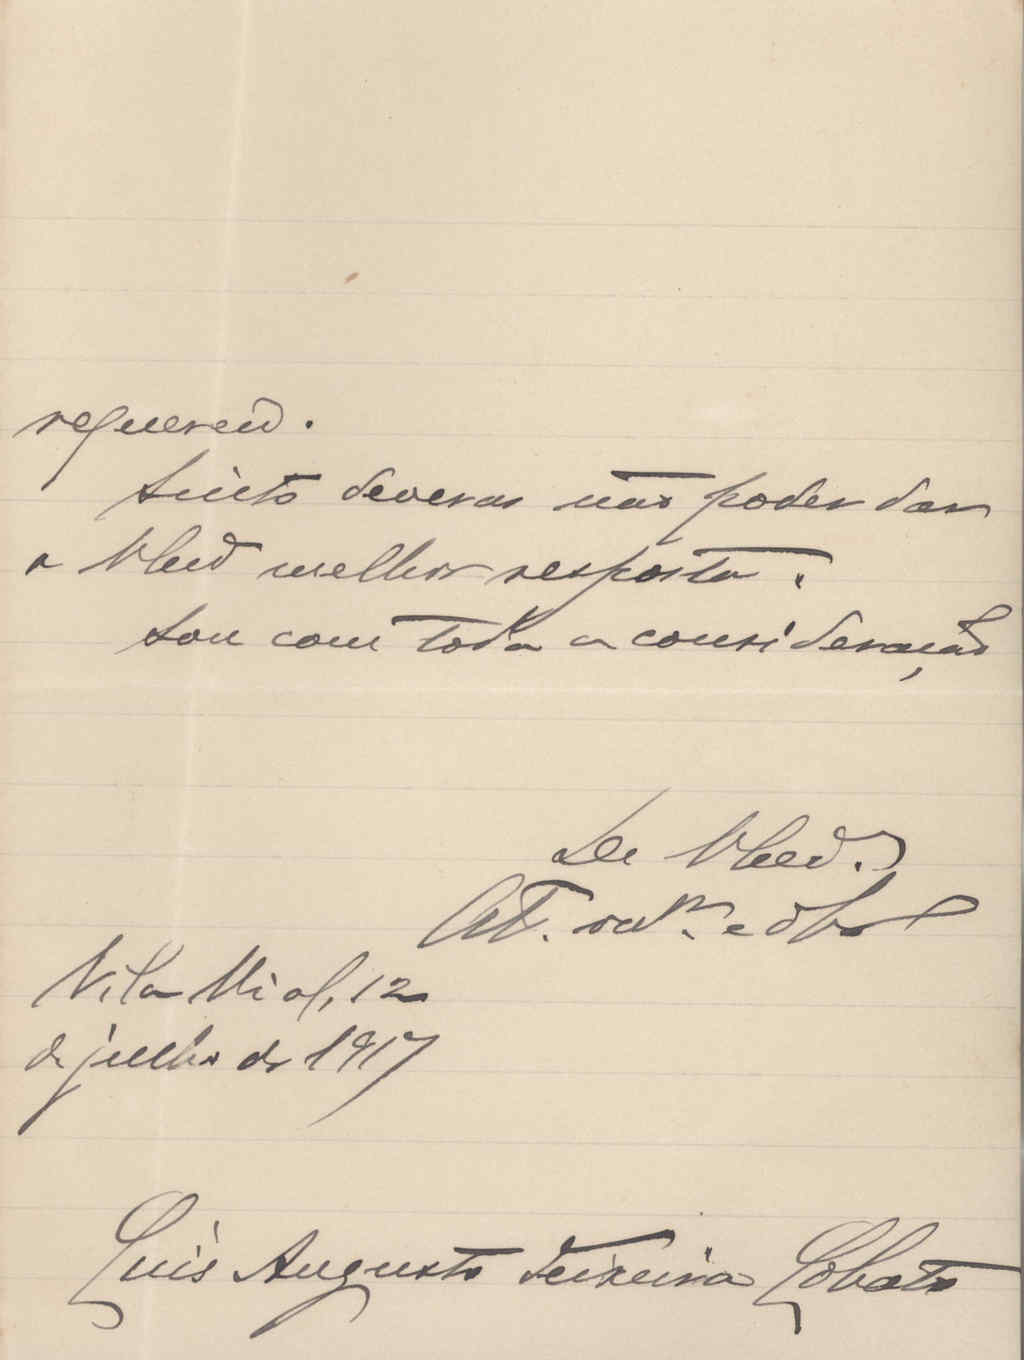 requereu.
Sinto deveras não poder dar
a melhor resposta.
Sou com toda a consideração
De
At.
Vila 12
de julho de 1917
Luis Augusto Teixeira Lobato